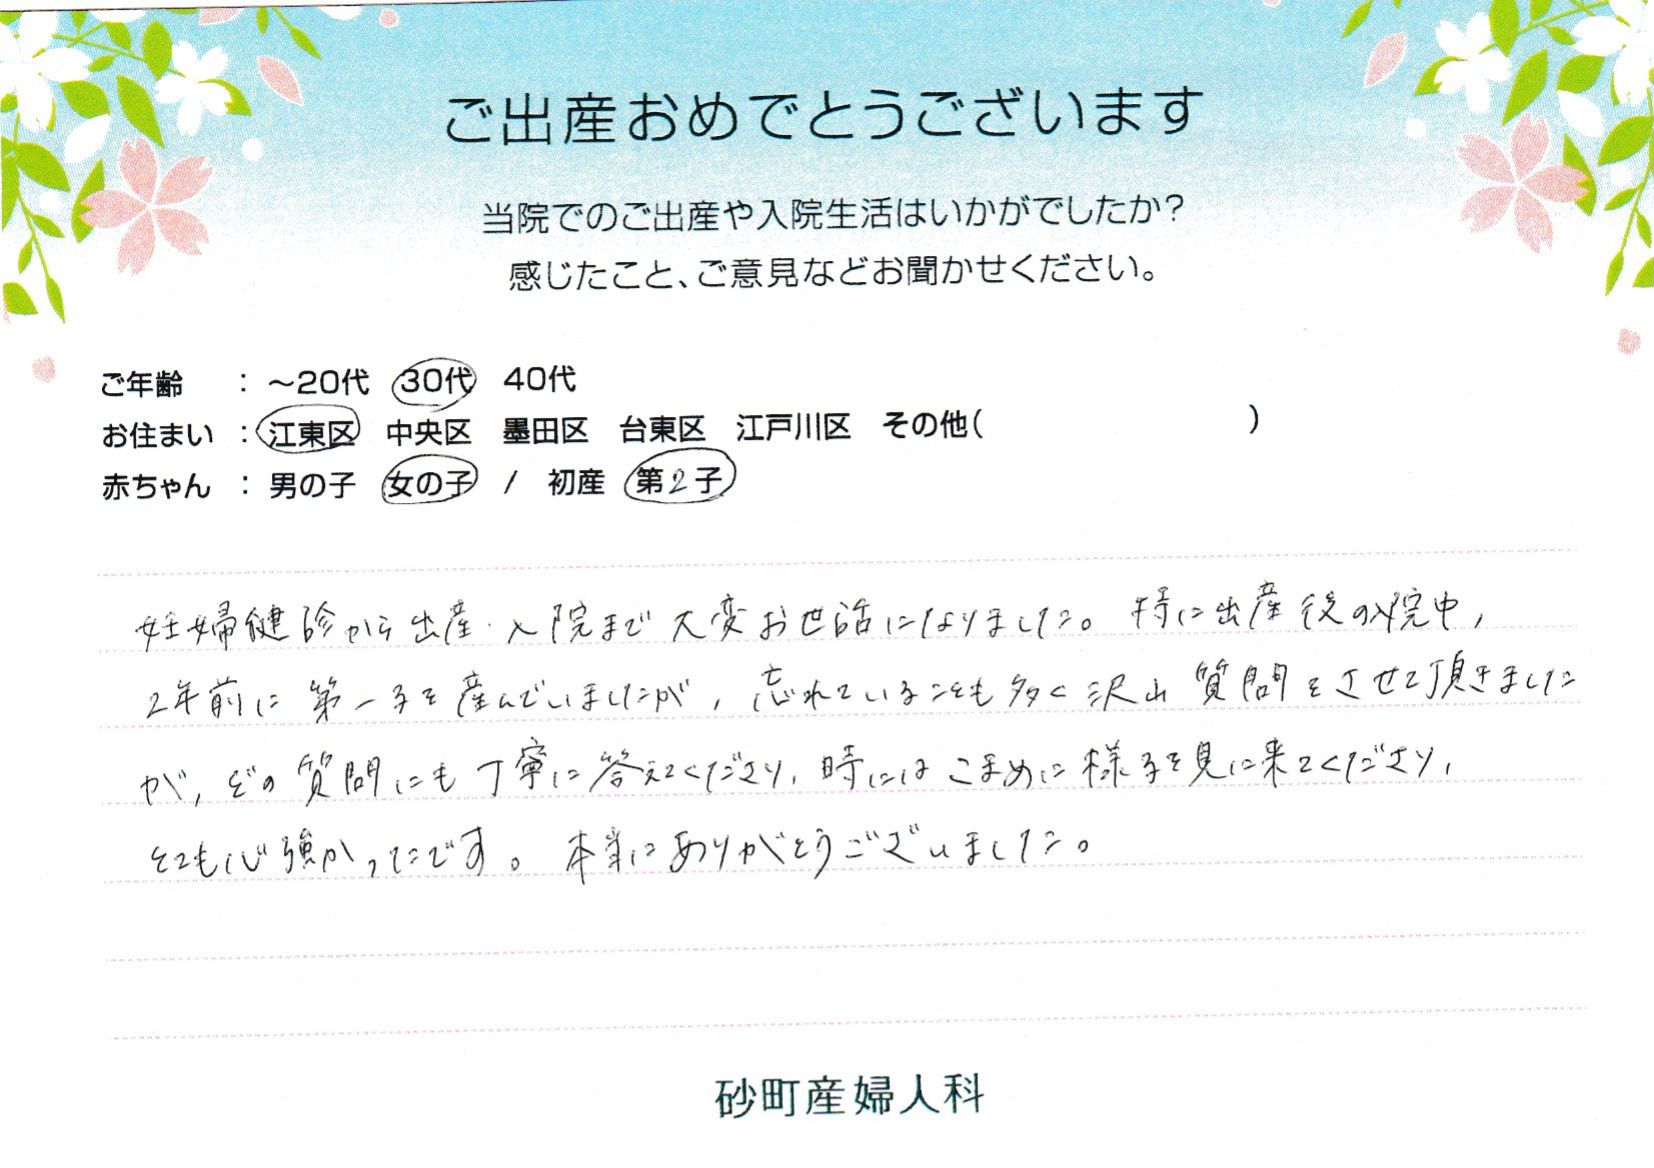 ご出産おめでとうございます
当院でのご出産や入院生活はいかがでしたか?
感じたこと、ご意見などお聞かせください。
ご年齢 : ～20代 30代 40代
お住まい : 江東区 中央区 墨田区 台東区 江戸川区 その他( )
赤ちゃん : 男の子 女の子 / 初産 第2子
妊婦健診から出産・入院まで大変お世話になりました。特に出産後の入院中,
2年前に第一子を産んでいましたが,忘れていることも多く沢山質問をさせて頂きました
が,どの質問にも丁寧に答えてくださり,時にはこまめに様子を見に来てくださり,
とても心強かったです。本当にありがとうございました。
砂町産婦人科